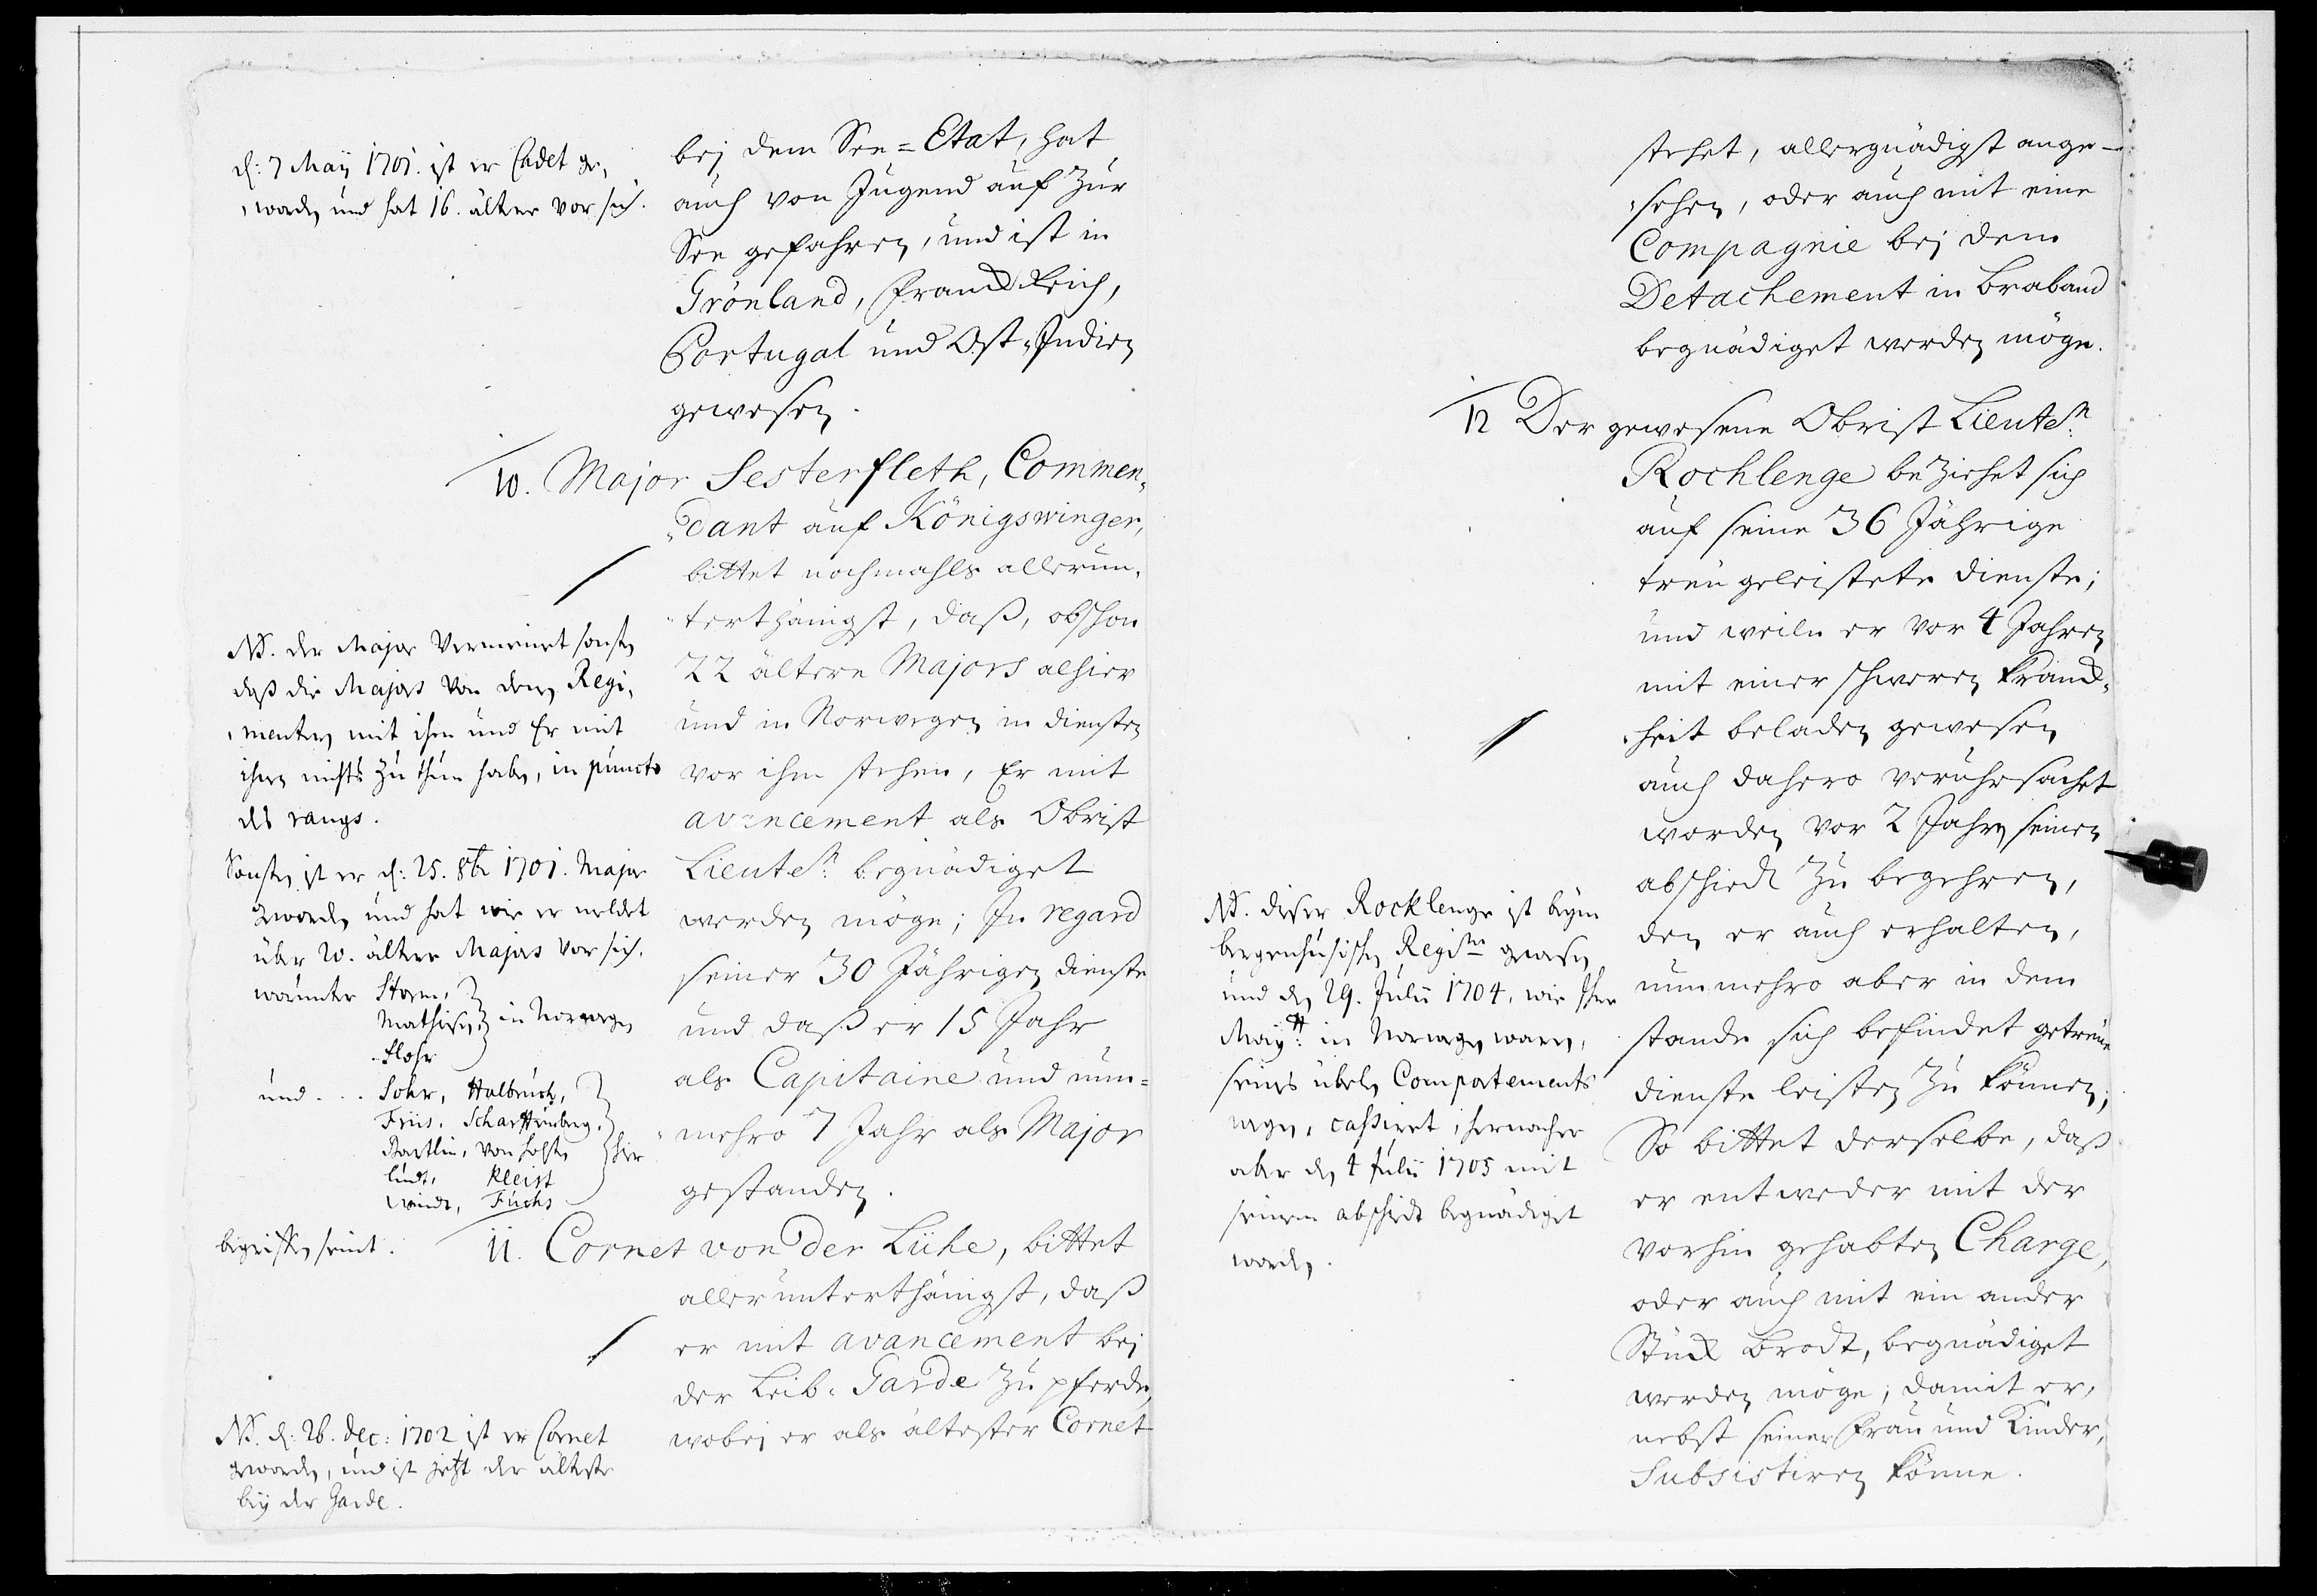 d: 7 Maÿ 1701. ist er Cadet ge,
,worden und hat 16. ältere vor sich.
bej dem See=Etat, hat
auch von Jugend auf zur
See gefahren, und ist in
Grönland, Franckreich,
Portugal und Ost-Indien
gewesen.
10. Major Sesterfleth, Commen,
,dant auf Königswinger,
bittet nochmahls allerun,
,terthänigst, daß, obschon
22 ältere Majors alhier
und in Norwegen in diensten
vor ihm stehen, Er mit
avancement als Obrist
Lieutet: begnädiget
werden möge; In regard
seiner 30 Jährigen dienste
und daß er 15 Jahr
als Capitaine und nun=
mehro 7 Jahr als Major
gestanden.
NB. der Major vermeinet sonsten
daß die Majors von denen Regi,
,mentern mit ihm und Er mit
ihnen nichts zu thun haben, in puncto
des rangs.
Sonsten ist er d: 25. 8br 1701. Major
geworden und hat wie er meldet
über 20. ältere Majors vor sich,
worunter Storm,
Mathisen, in Norwegen
Flohr
und ... Sohr, Halbruch,
Friis, Scharffenberg,
Bartlin, von Holsten hier
Lindt, Kleist
Windt, Fuchs
begriffen seint.
11. Cornet von der Lühe, bittet
allerunterthänigst, daß
er mit avancement bej
der Leib-Garde zu pferde,
wobej er als ältester Cornet
NB. d: 26. dec: 1702 ist er Cornet
geworden, und ist jetzt der älteste
beÿ der Garde.
stehet, allergnädigst ange-
,sehen, oder auch mit eine
Compagnie bej dem
Detachement in Braband
begnädiget werden möge.
12 Der gewesene Obrist Lieuten:
Rochlenge beziehet sich
auf seine 36 Jährige
treu geleistete dienste;
und weiln er vor 4 Jahren
mit einer schweren Kranck,
,heit beladen gewesen
auch dahero veruhrsachet
worden vor 2 Jahren seinen
abschiedt zu begehren,
den er auch erhalten,
nunmehro aber in dem
stande sich befindet getreue
dienste leisten zu können;
So bittet derselbe, daß
er entweder mit der
vorhin gehabten Charge,
oder auch mit ein ander
Stück Brodt, begnädiget
werden möge, damit er,
nebst seiner Frau und Kinder,
Subsistiren könne.
NB. dieser Rocklenge ist beym
bergenhusischen Regim gewesen
und den 29. Julii 1704, wie Ihro
Maÿtt: in Norwegen waren,
seines übeln Comportements
wegen, cassiret, hernacher
aber den 4 Julii 1705 mit
seinem abschiedt begnädiget
worden.